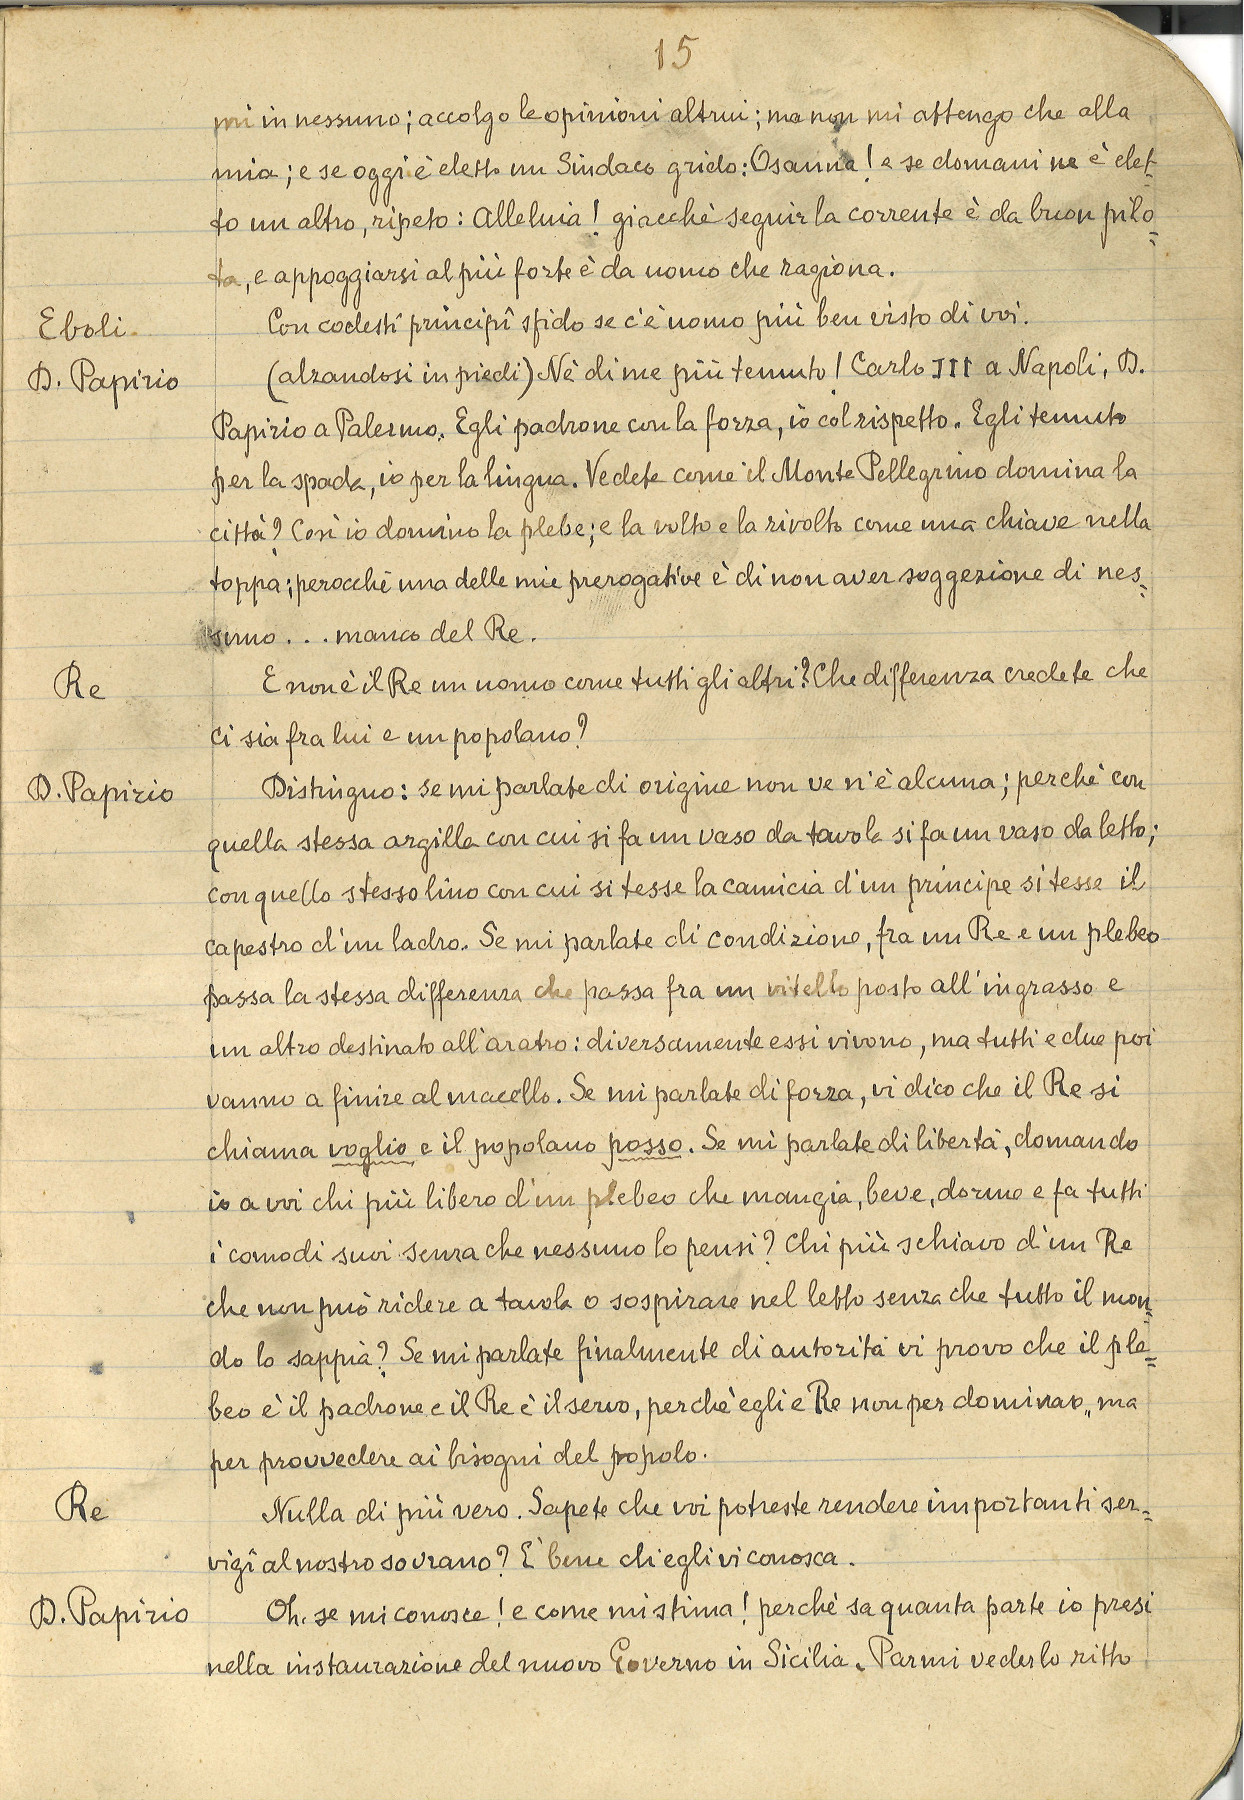 15
mi in nessuno; accolgo le opinioni altrui; ma non mi attengo che alla
mia; e se oggi è eletto un Sindaco grido: Osanna! e se domani ne è elet=
to un altro, ripeto: Alleluia! giacchè seguir la corrente è da buon pilo=
ta, e appoggiarsi al più forte è da uomo che ragiona.
Eboli Con codesti principî sfido se c'è uomo più ben visto di voi.
D. Papirio (alzandosi in piedi) Nè di me più temuto! Carlo III a Napoli, D.
Papirio a Palermo. Egli padrone con la forza, io col rispetto. Egli temuto
per la spada, io per la lingua. Vedete come il Monte Pellegrino domina la
città? Così io domino la plebe; e la volto e la rivolto come una chiave nella
toppa; perocchè una delle mie prerogative è di non aver soggezione di nes=
suno... manco del Re.
Re E non è il Re un uomo come tutti gli altri? Che differenza credete che
ci sia fra lui e un popolano?
D. Papirio Distinguo: se mi parlate di origine non ve n'è alcuna; perchè con
quella stessa argilla con cui si fa un vaso da tavola si fa un vaso da letto;
con quello stesso lino con cui si tesse la camicia d'un principe si tesse il
capestro d'un ladro. Se mi parlate di condizione, fra un Re e un plebeo
passa la stessa differenza che passa fra un vitello posto all'ingrasso e
un altro destinato all'aratro: diversamente essi vivono, ma tutti e due poi
vanno a finire al macello. Se mi parlate di forza, vi dico che il Re si
chiama voglio e il popolano posso. Se mi parlate di libertà, domando
io a voi chi più libero d'un plebeo che mangia, beve, dorme e fa tutti
i comodi suoi senza che nessuno lo pensi? Chi più schiavo d'un Re
che non può ridere a tavola o sospirare nel letto senza che tutto il mon=
do lo sappia? Se mi parlate finalmente di autorità vi provo che il ple=
beo è il padrone e il Re è il servo, perchè egli è Re non per dominar, ma
per provvedere ai bisogni del popolo.
Re Nulla di più vero. Sapete che voi potreste rendere importanti ser=
vigî al nostro sovrano? È bene ch'egli vi conosca.
D. Papirio Oh. se mi conosce! e come mi stima! perchè sa quanta parte io presi
nella instaurazione del nuovo Governo in Sicilia. Parmi vederlo ritto